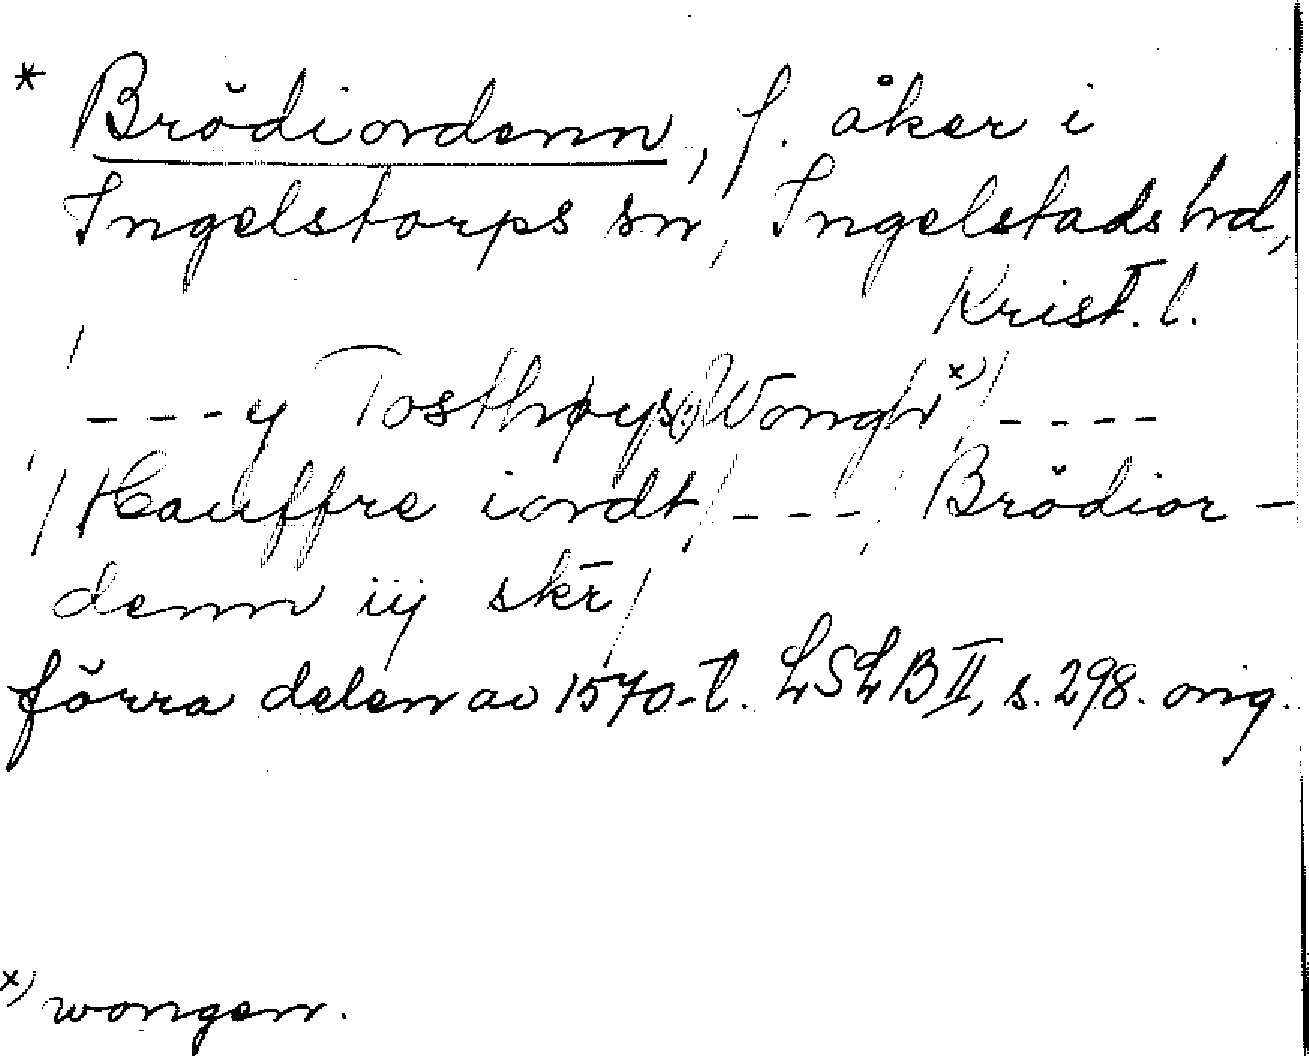 * Brödiordenn, f. åker i
Ingelstorps sn, Ingelstads hd,
Krist. l.
/
- - - y Tosthøys Wongh x) / - - - -
/ Hauffre iordt / - - - / Brödior-
denn iij skr̄ /
förra delen av 1570-t. LSLB II, s. 298. orig.
x) wongen.